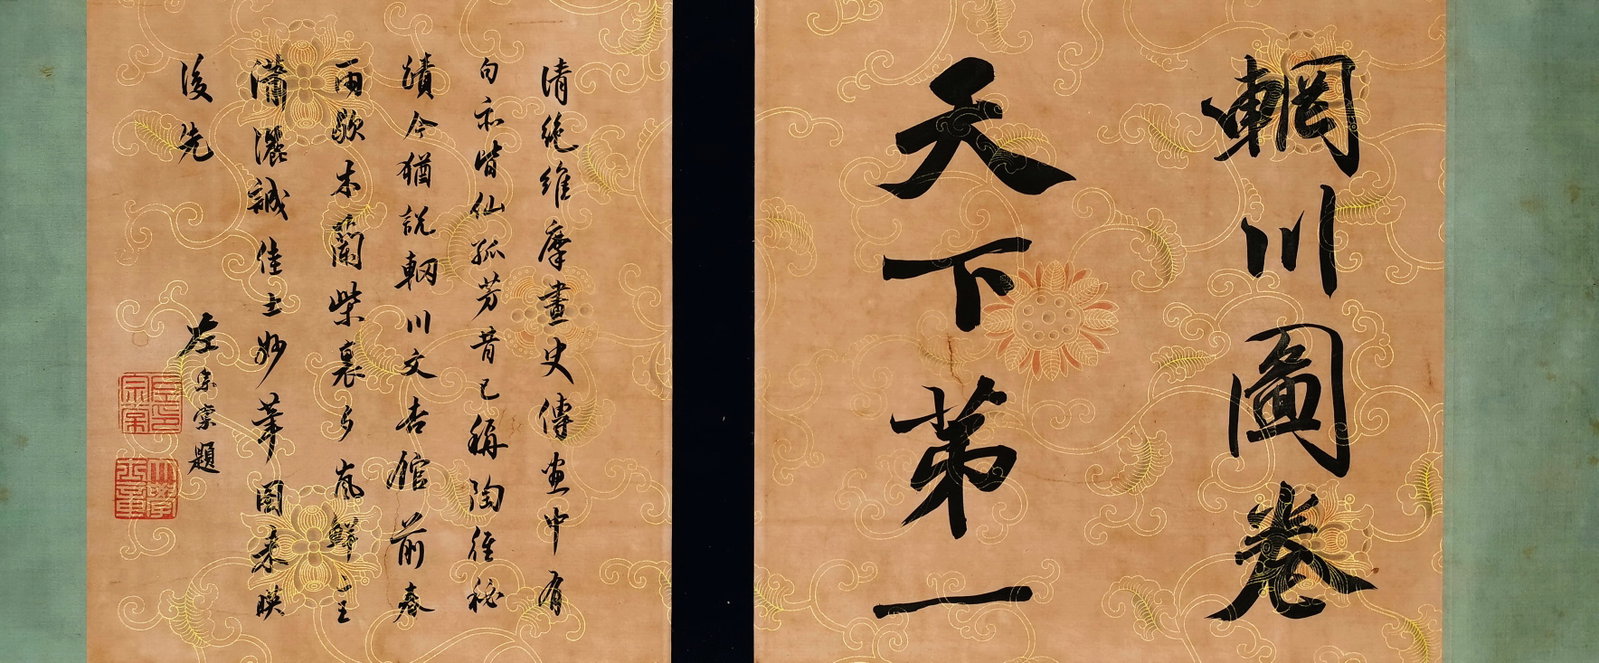 輞川圖卷
天下第一
清絕維摩畫史傳画中有
句和皆仙孤芳昔已稱陶徑秘
蹟今猶說輞川文杏館前春
雨歇木蘭柴裏夕嵐鮮主
瀟灑誠佳士妙筆圖來映
後先
左宗棠題
左印宗棠